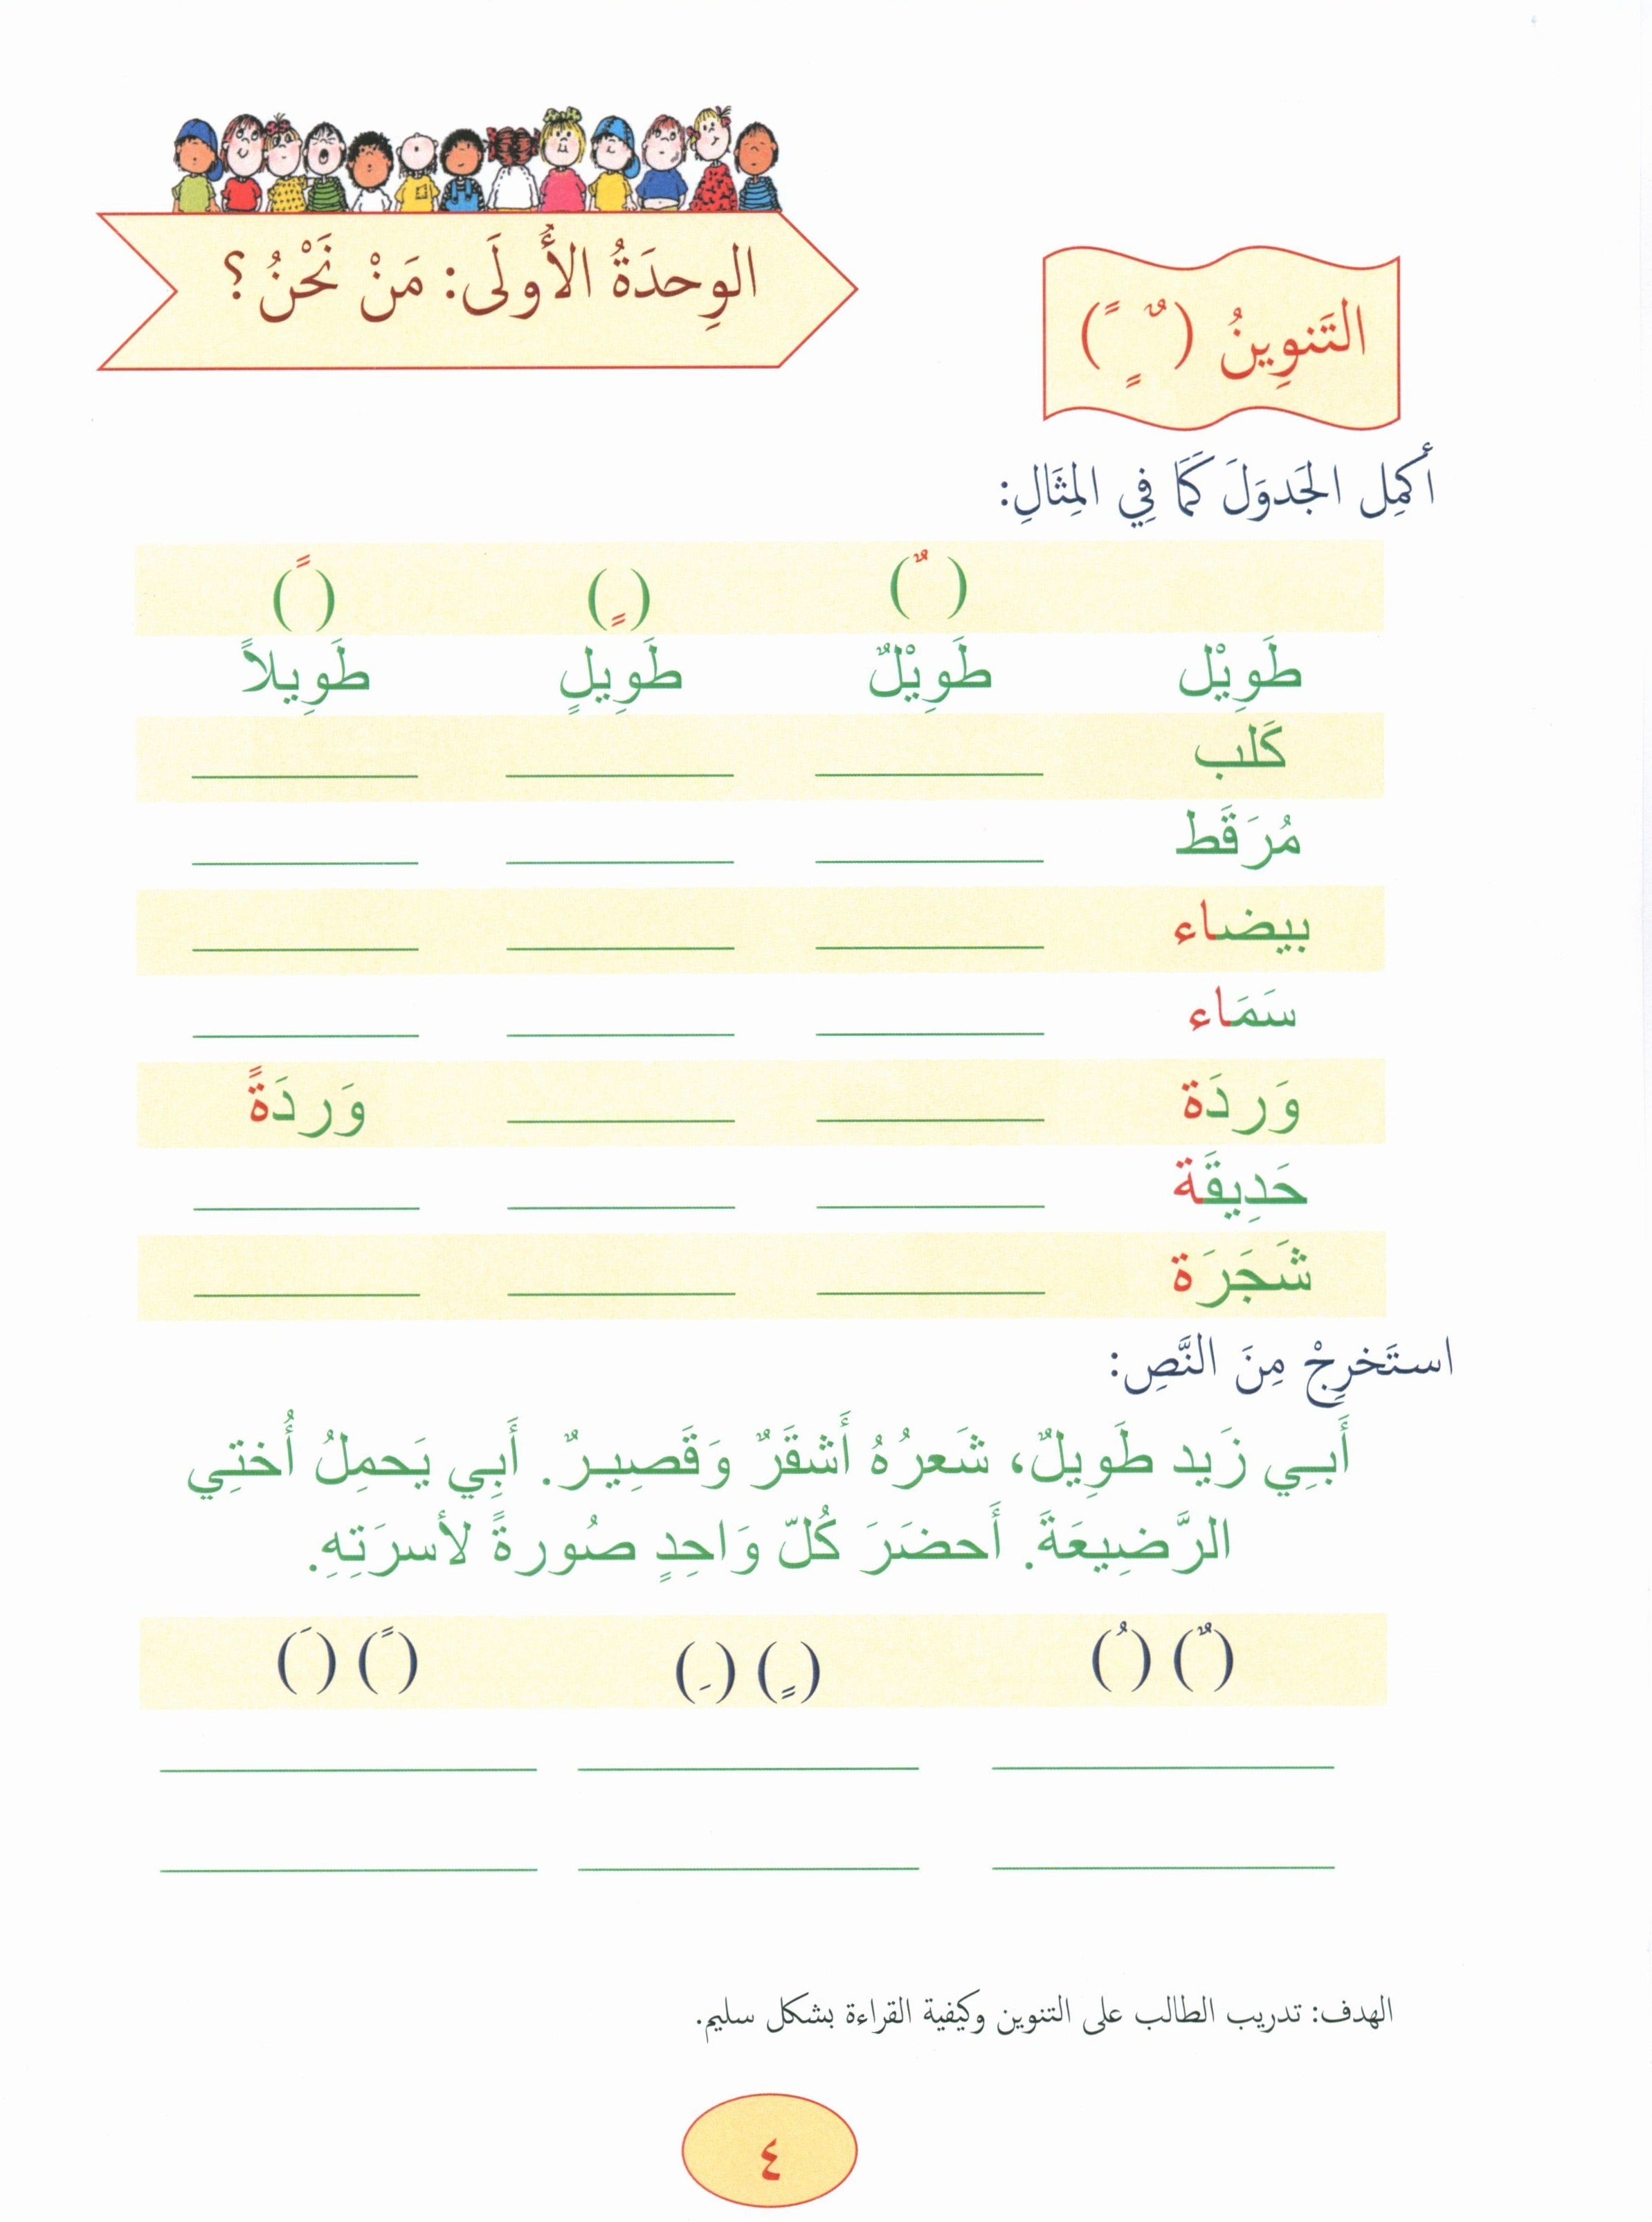 الوِحدَةُ الأُولَى: مَنْ نَحْنُ ؟
التَنوِينُ ( ٌ ٍ ً )
أكمِل الجَدوَلَ كَمَا فِي المِثَالِ:
( ٌ ) ( ٍ ) ( ً )
طَوِيْل طَوِيْلٌ طَوِيلٍ طَوِيلاً
كَلب
مُرَقَط
بيضاء
سَمَاء
وَردَة وَردَةً
حَدِيقَة
شَجَرَة
استَخرِجْ مِنَ النَّصِ:
أَبِي زَيد طَوِيلٌ، شَعرُهُ أَشقَرٌ وَقَصِيرٌ. أَبِي يَحمِلُ أُختِي
الرَّضِيعَةَ. أَحضَرَ كُلّ وَاحِدٍ صُورةً لأسرَتِهِ.
( ٌ ) ( ُ ) ( ٍ ) ( ِ ) ( ً ) ( َ )
الهدف: تدريب الطالب على التنوين وكيفية القراءة بشكل سليم.
٤